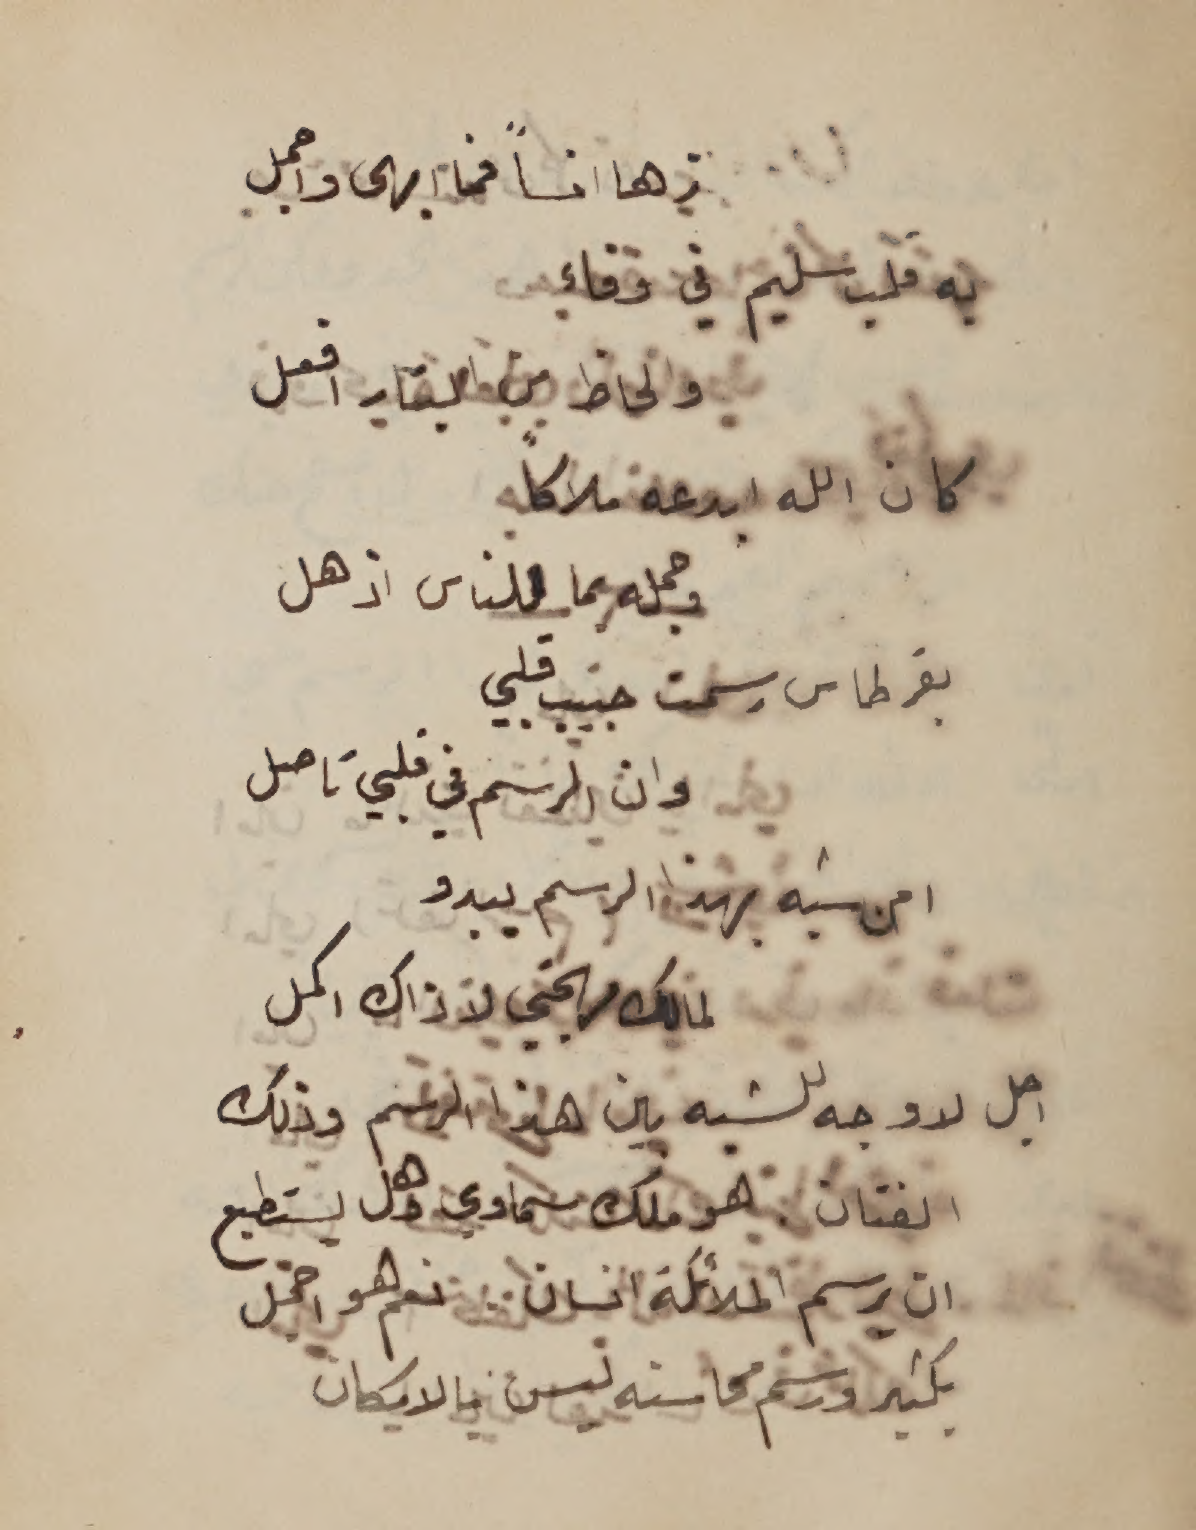 زها انساً فما ابهى واجمل
به قلب سليم في وفاءٍ
والحاظ من البتار افعل
كان الله ابدعه ملاكاً
وجمله بما للناس اذهل
بقرطاس رسمت حبيب قلبي
وان الرسم في قلبي تاصل
امن شبه بهذا الرسم يبدو
لمالك مهجتي لا ذاك اكمل
اجل لا وجه للشبه بين هذا الرسم وذلك
الفتان . هو ملك سماوي وهل يستطيع
ان يرسم الملائكة انسان .. نعم هو اجمل
بكثير ورسم محاسنه ليس بالامكان